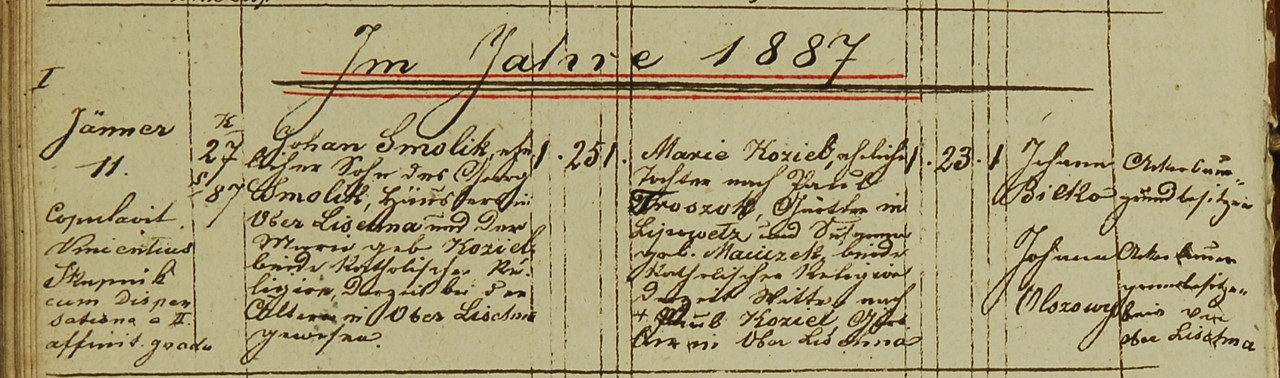 Im Jahre 1887
I
Jänner
11.
Copulavit
Vincentius
Skupnik
cum Dispen
satione a II.
affinit. gradu
27
87
Johan Smolik, ehe
licher Sohn des Georg
Smolik, Häusler in
Ober Lischna und der
Marie geb. Kozieł
beide Katholischer Re-
ligion, derzeit bei den
Altern in Ober Lischna
gewesen.
1 . 25 1.
Marie Kozieł, eheliche
Tochter nach Paul
Troszok, Gärtler in
und Susanna
geb. beide
Katholischer Religion
derzeit Wittwe nach
+ Paul Kozieł,
ler in Ober Lischna
1 . 23 . 1
Johann
Bilko
Johann
Olszowy
Ackerbau-
grundbesitzer
Ackerbauer
grundbesitze-
beide von
ober Lischna